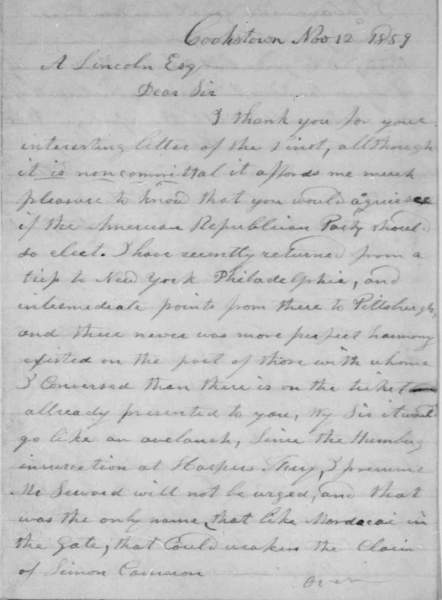 Cookstown Nov 12th 1859
A Lincoln Esq
Dear Sir
I thank you for your
interesting letter of the 1 inst, allthough
it is noncommittal it affords me much
pleasure to know that you would aquiesce
if the American Republican Party should
so elect. I have recently returned from a
trip to New York Philadelphia, and
intermediate points from there to Pittsburgh,
and there never was more perfect harmony
existed on the part of those with whome
I Conversed than there is on the ticket
allready presented to you, Why Sir it would
go like an avelanch, Since the Humbug
insurection at Harpers Ferry, I presume
Mr Seward will not be urged, and that
was the only name, that like Mordacai in
the Gate, that Could weaken the Claim
of Simon Cameron
over